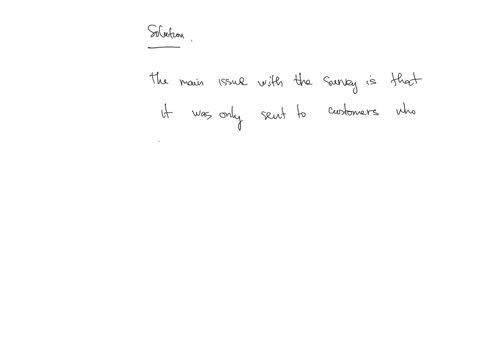 Solution.
The main issue with the survey is that
it was only sent to customers who